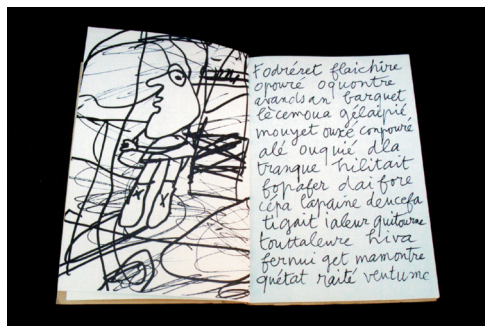 Fodréret flaichire
opouré oquontre
avands an barquet
lècemoua gélaipié
mouyet ouxé conpouré
alé ouquié dla
tranque hilitait
fopafer dai fore
cépa lapaine deucefa
tigait ialeur quitourne
touttaleure hiva
fernui get mamontre
quétat raité ventumc